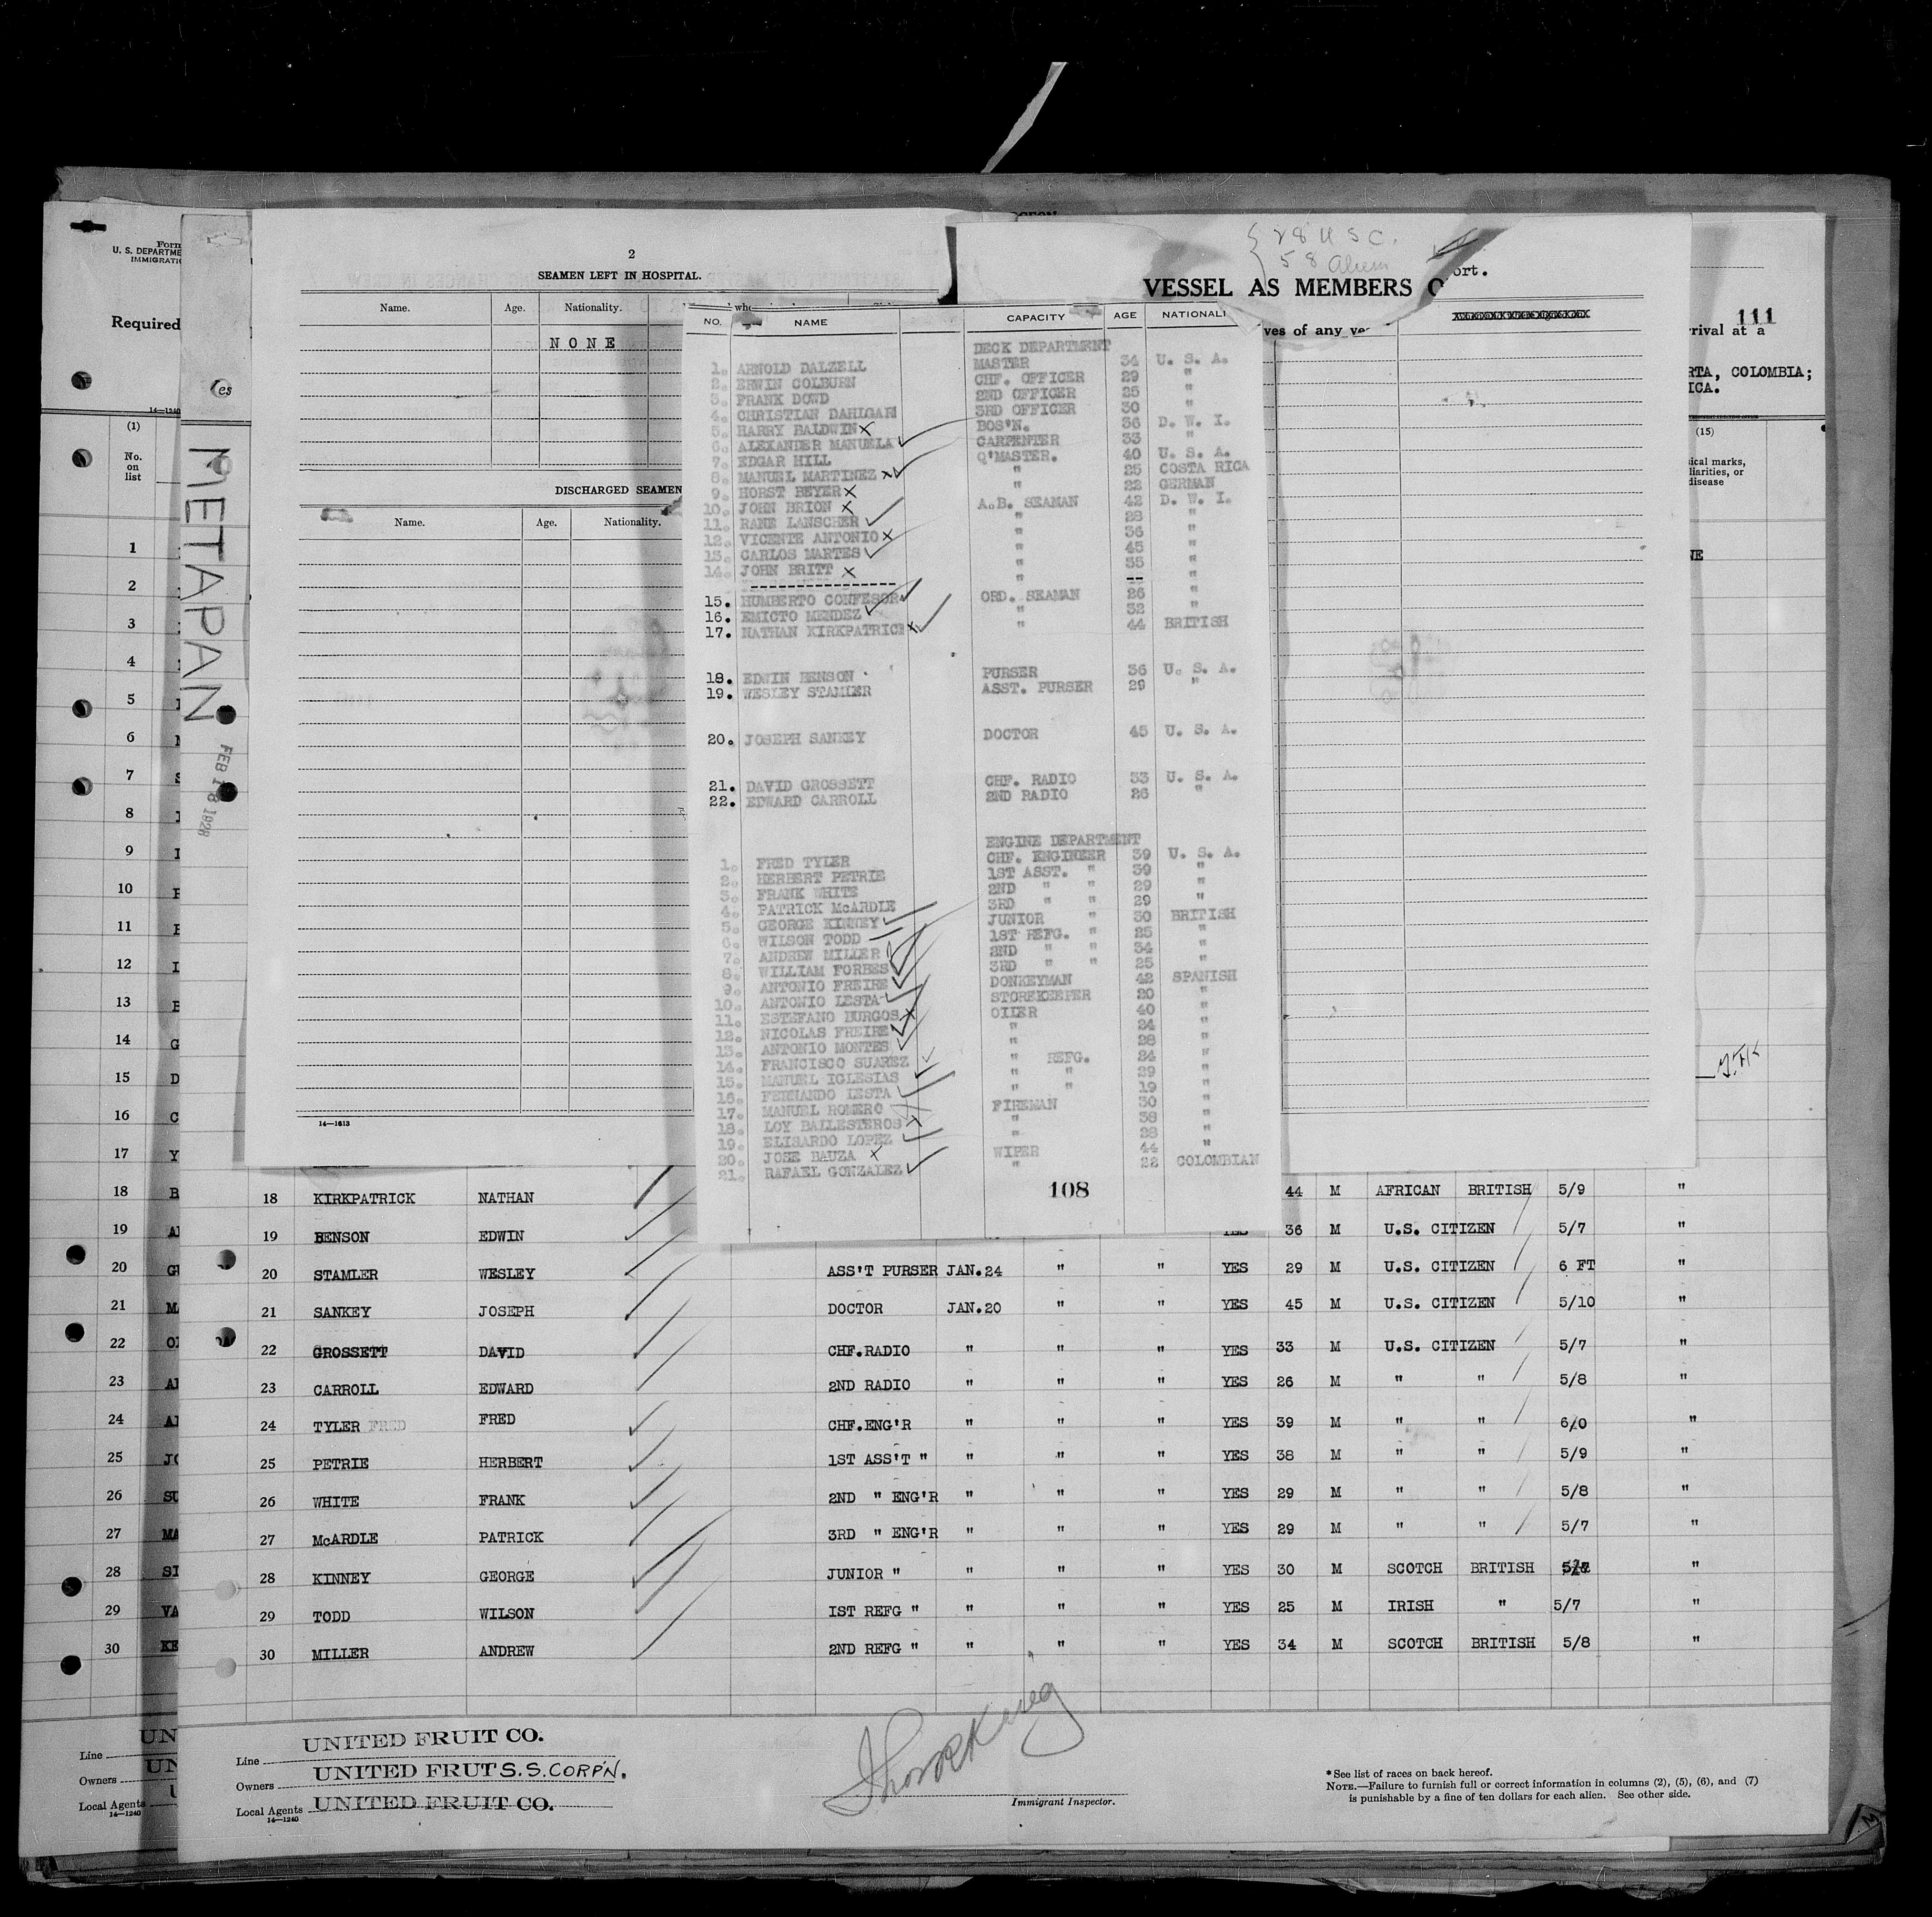 { 28 U S C.
58 Alien
ort.
VESSEL AS MEMBERS O
ves of any ve
111
rival at a
RTA, COLOMBIA;
ICA.
(15)
ical marks,
liarities, or
disease
NE
Form
U. S. DEPARTME
IMMIGRATI
Required
14—1240
(1)
No.
on
list
1
2
3
4
5
6
7
8
9
10
11
12
13
14
15
16
17
18
19
20
21
22
23
24
25
26
27
28
29
30
METAPAN
FEB 18 1928
2
SEAMEN LEFT IN HOSPITAL.
Name. Age. Nationality.
NONE
DISCHARGED SEAMEN
Name. Age. Nationality.
14—1613
NO. NAME CAPACITY AGE NATIONALI
DECK DEPARTMENT
1. ARNOLD DALZELL MASTER 34 U. S. A.
2. ERWIN COLBURN CHF. OFFICER 29 "
3. FRANK DOWD 2ND OFFICER 25 "
4. CHRISTIAN DAHLGARD 3RD OFFICER 30 "
5. HARRY BALDWIN X BOS'N. 36 D. W. I.
6. ALEXANDER MANUELA ✓ CARPENTER 33 "
7. EDGAR HILL Q'MASTER. 40 U. S. A.
8. MANUEL MARTINEZ X✓ " 25 COSTA RICA
9. HORST BEYER X " 22 GERMAN
10. JOHN BRION X A.B. SEAMAN 42 D. W. I.
11. RANE LANSCHER ✓ " 28 "
12. VICENTE ANTONIO X " 36 "
13. CARLOS MARTES ✓ " 45 "
14. JOHN BRITT X " 35 "
---------------- " -- "
15. HUMBERTO CONFESOR ✓ ORD. SEAMAN 26 "
16. EMICTO MENDEZ ✓ " 32 "
17. NATHAN KIRKPATRICK X✓ " 44 BRITISH
18. EDWIN BENSON PURSER 36 U. S. A.
19. WESLEY STAMLER ASST. PURSER 29 "
20. JOSEPH SANKEY DOCTOR 45 U. S. A.
21. DAVID GROSSETT CHF. RADIO 33 U. S. A.
22. EDWARD CARROLL 2ND RADIO 26 "
ENGINE DEPARTMENT
1. FRED TYLER CHF. ENGINEER 39 U. S. A.
2. HERBERT PETRIE 1ST ASST. " 39 "
3. FRANK WHITE 2ND " " 29 "
4. PATRICK McARDLE 3RD " " 29 "
5. GEORGE KINNEY ✓ JUNIOR " 30 BRITISH
6. WILSON TODD 1ST REFG. " 25 "
7. ANDREW MILLER ✓ 2ND " " 34 "
8. WILLIAM FORBES ✓ 3RD " " 25 "
9. ANTONIO FREIRE ✓ DONKEYMAN 42 SPANISH
10. ANTONIO LESTA ✓ STOREKEEPER 20 "
11. ESTEFANO BURGOS X OILER 40 "
12. NICOLAS FREIRE ✓ " 24 "
13. ANTONIO MONTES ✓ " 28 "
14. FRANCISCO SUAREZ ✓ " REFG. 24 "
15. MANUEL IGLESIAS ✓ " " 29 "
16. FERNANDO LESTA ✓ " " 19 "
17. MANUEL ROMERO FIREMAN 30 "
18. LOY BALLESTEROS X " 38 "
19. ELISARDO LOPEZ ✓ " 28 "
20. JOSE BAUZA X WIPER 44 "
21. RAFAEL GONZALEZ ✓ " 22 COLOMBIAN
108
18 KIRKPATRICK NATHAN 44 M AFRICAN BRITISH 5/9 "
19 BENSON EDWIN YES 36 M U.S. CITIZEN 5/7 "
20 STAMLER WESLEY ASS'T PURSER JAN.24 " " YES 29 M U.S. CITIZEN 6 FT "
21 SANKEY JOSEPH DOCTOR JAN.20 " " YES 45 M U.S. CITIZEN 5/10 "
22 GROSSETT DAVID CHF.RADIO " " " YES 33 M U.S. CITIZEN 5/7 "
23 CARROLL EDWARD 2ND RADIO " " " YES 26 M " " 5/8 "
24 TYLER FRED FRED CHF.ENG'R " " " YES 39 M " " 6/0 "
25 PETRIE HERBERT 1ST ASS'T " " " " YES 38 M " " 5/9 "
26 WHITE FRANK 2ND " ENG'R " " " YES 29 M " " 5/8 "
27 McARDLE PATRICK 3RD " ENG'R " " " YES 29 M " " 5/7 "
28 KINNEY GEORGE JUNIOR " " " " YES 30 M SCOTCH BRITISH "
29 TODD WILSON IST REFG " " " " YES 25 M IRISH " 5/7 "
30 MILLER ANDREW 2ND REFG " " " " YES 34 M SCOTCH BRITISH 5/8 "
Line
Owners
Local Agents
14—1240
Line UNITED FRUIT CO.
Owners UNITED FRUT S.S. CORP'N.
Local Agents UNITED FRUIT CO.
14—1240
Immigrant Inspector.
*See list of races on back hereof.
NOTE.—Failure to furnish full or correct information in columns (2), (5), (6), and (7)
is punishable by a fine of ten dollars for each alien. See other side.